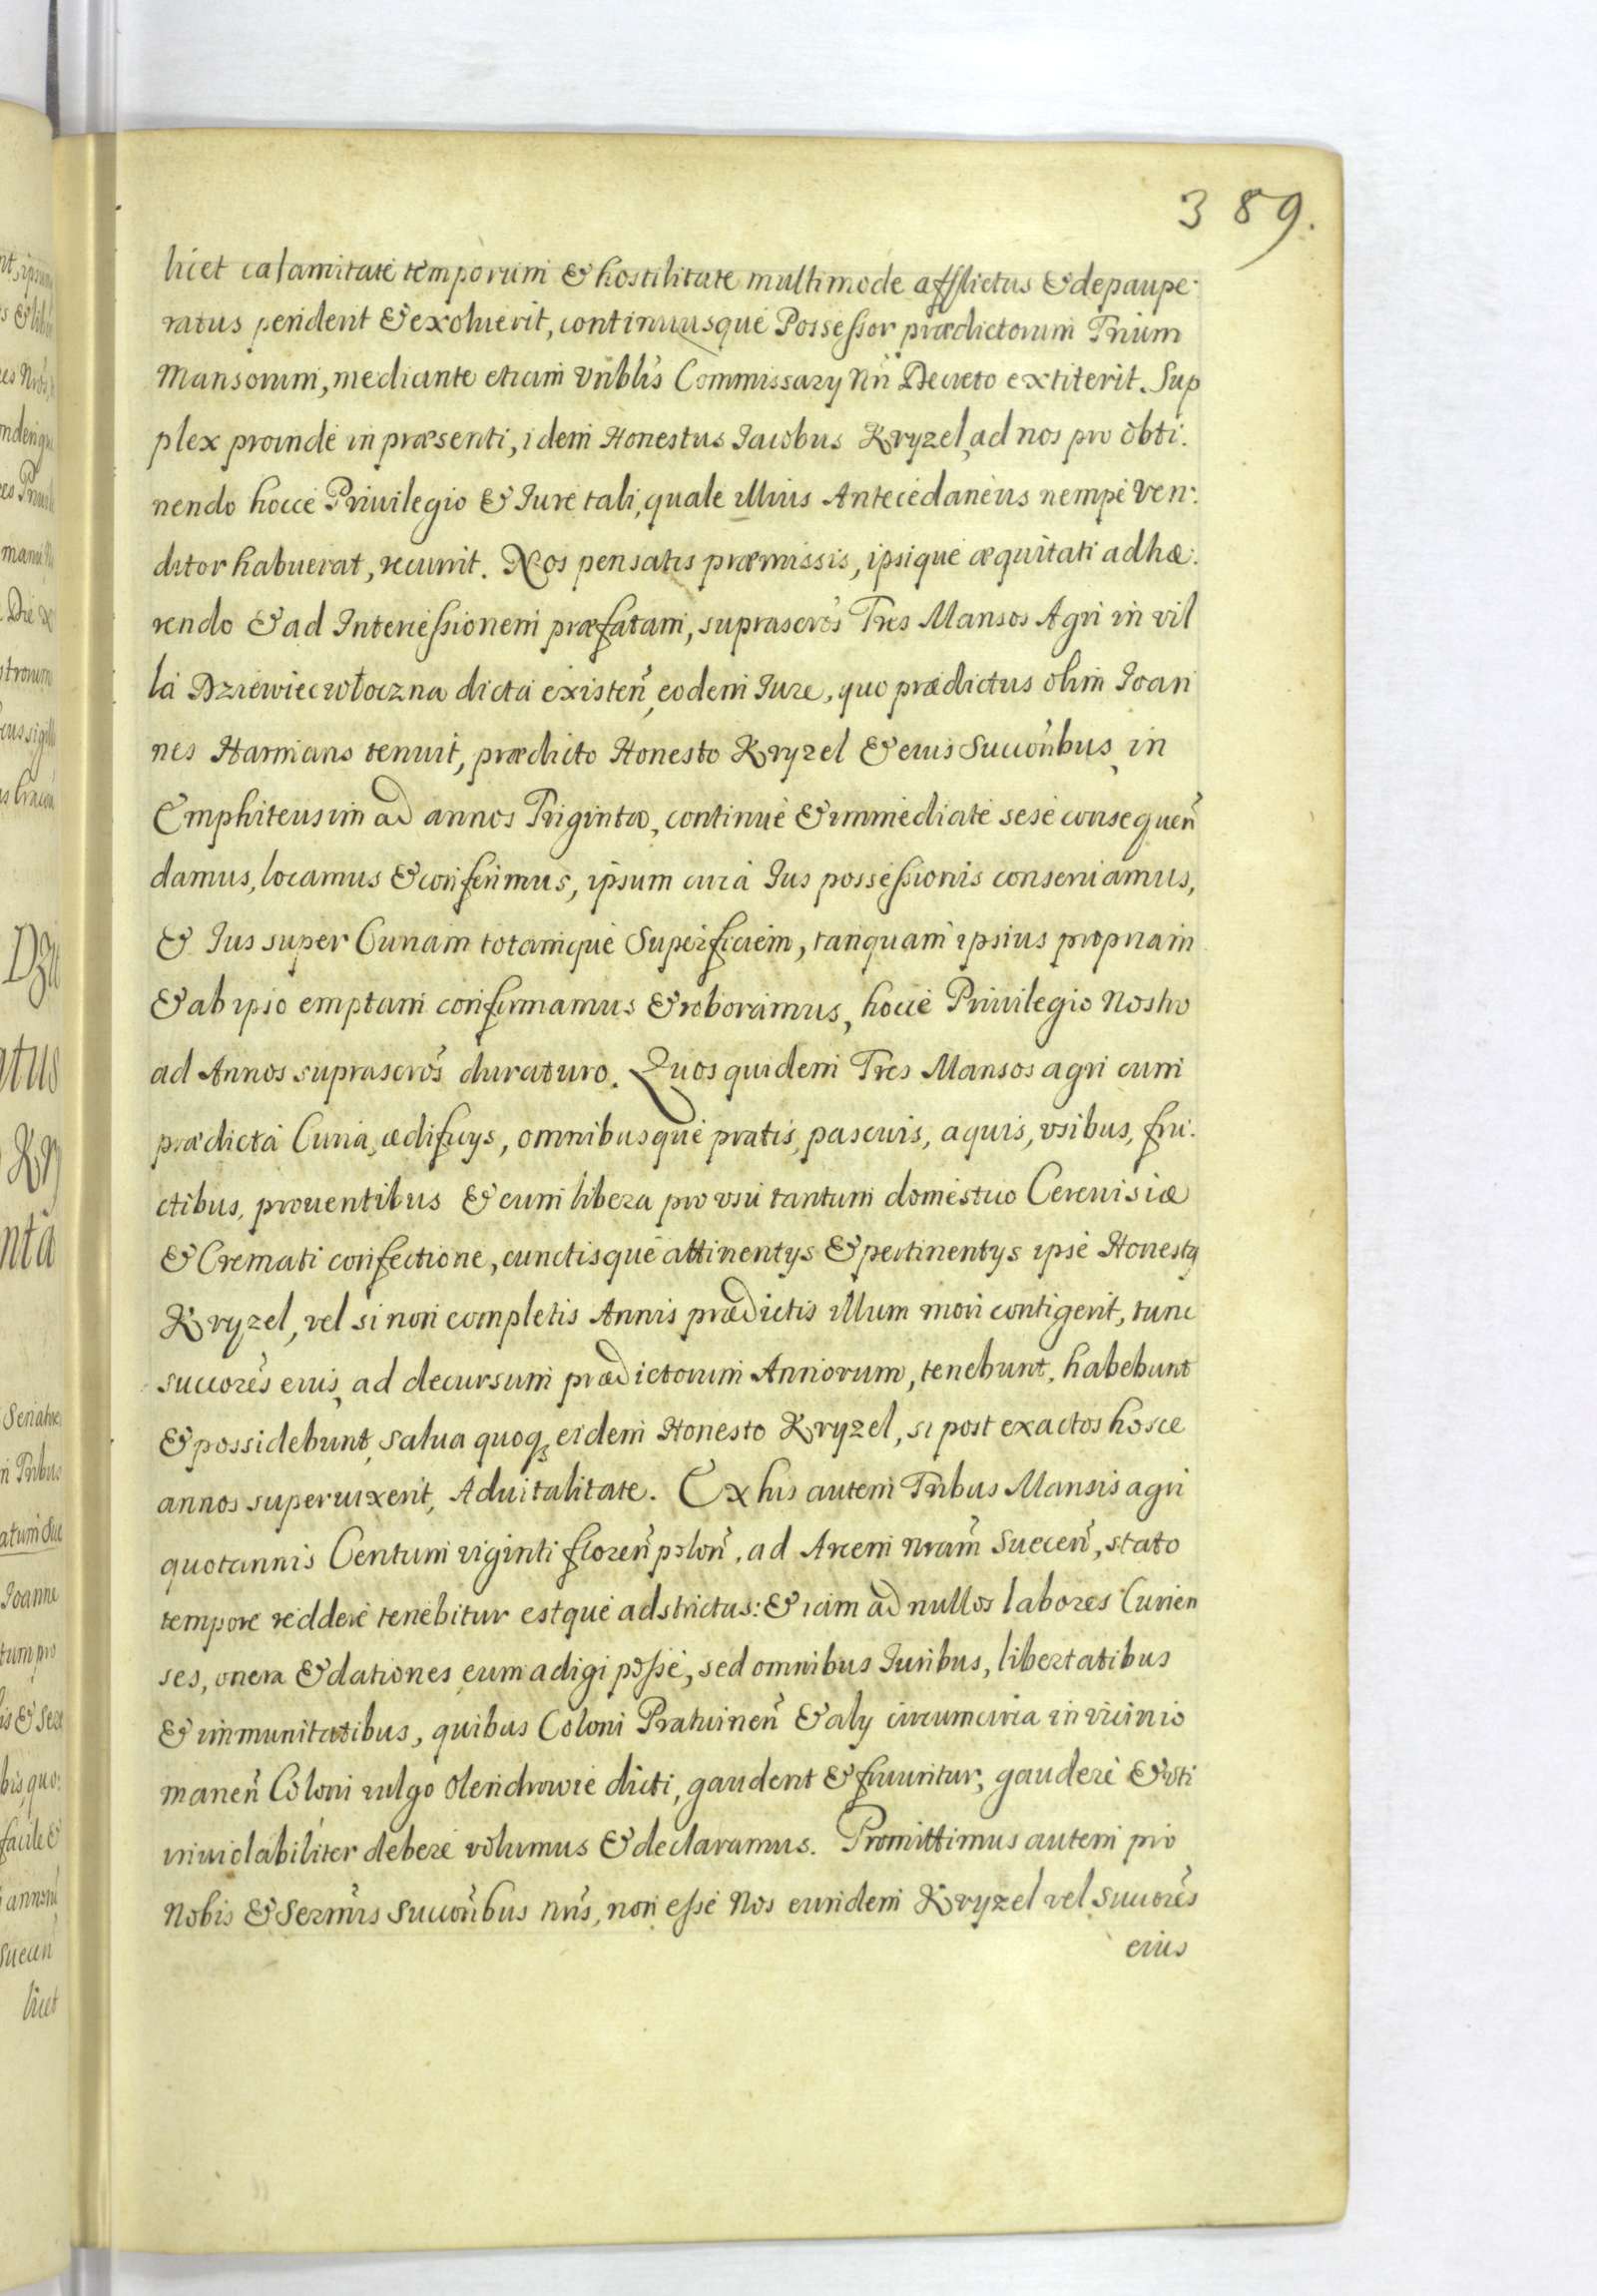 389.
licet calamitate temporum & hostilitate multimode afflictus & depaupe-
ratus penderit & exoluerit, continuusque Possessor prædictorum Trium
Mansorum, mediante etiam Vnblis Commissarÿ Nri Decreto extiterit. Sup
plex proinde in præsenti, idem Honestus Iacobus Kryzel, ad nos pro obti-
nendo hocce Priuilegio & Iure tali, quale illius Antecedaneus nempe Ven-
ditor habuerat, recurrit. Nos pensatis præmissis, ipsique æquitati adhæ-
rendo & ad Intercessionem præfatam, suprascros Tres Mansos Agri in vil
la Dziewiecwłoczna dicta existen, eodem Iure, quo prædictus olim Ioan
nes Harmans tenuit, prædicto Honesto Kryzel & eius Succoribus, in
Emphiteusim ad annos Triginta, continue & immediate sese consequen
damus, locamus & conferimus, ipsum circa Ius possessionis conseruamus,
& Ius super Curiam totamque Superficiem, tanquam ipsius propriam
& ab ipso emptam confirmamus & roboramus, hocce Priuilegio Nostro
ad Annos suprascros duraturo. Quos quidem Tres Mansos agri cum
prædicta Curia, ædificÿs, omnibusque pratis, pascuis, aquis, vsibus, fru-
ctibus, prouentibus & cum libera pro vsu tantum domestico Cereuisiæ
& Cremati confectione, cunctisque attinentÿs & pertinentÿs ipse Honestq
Kryzel, vel si non completis Annis prædictis illum mori contigerit, tunc
succores eius, ad decursum prædictorum Annorum, tenebunt, habebunt
& possidebunt, salua quoq eidem Honesto Kryzel, si post exactos hosce
annos superuixerit, Aduitalitate. Ex his autem Tribus Mansis agri
quotannis Centum viginti floren polon, ad Arcem nram Suecen, stato
tempore reddere tenebitur estque adstrictus: & iam ad nullos labores Curien
ses, onera & dationes eum adigi posse, sed omnibus Iuribus, libertatibus
& immunitatibus, quibus Coloni Pratuinen & alÿ circumcirca in vicinio
manen Coloni vulgo Olendrowie dicti, gaudent & fruuntur, gaudere & vti
inuiolabiliter debere volumus & declaramus. Promittimus autem pro
Nobis & Sermis Succoribus nris, non esse Nos eundem Kryzel vel Succores
eius